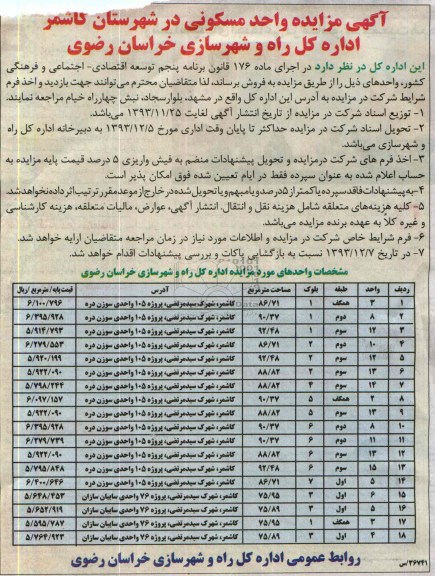 آگهی مزایده واحد مسکونی در شهرستان کاشمر
اداره کل راه و شهرسازی خراسان رضوی
این اداره کل در نظر دارد در اجرای ماده ۱۷۶ قانون برنامه پنجم توسعه اقتصادی- اجتماعی و فرهنگی
کشور، واحدهای ذیل را از طریق مزایده به فروش برساند، لذا متقاضیان محترم می‌توانند جهت بازدید و اخذ فرم
شرایط شرکت در مزایده به آدرس این اداره کل واقع در مشهد، بلوار سجاد، نبش چهارراه خیام مراجعه نمایند.
۱- توزیع اسناد شرکت در مزایده از تاریخ انتشار آگهی لغایت ۱۳۹۳/۱۱/۲۵ می‌باشد.
۲- تحویل اسناد شرکت در مزایده حداکثر تا پایان وقت اداری مورخ ۱۳۹۳/۱۲/۵ به دبیرخانه اداره کل راه و
شهرسازی می‌باشد.
۳- اخذ فرم های شرکت درمزایده و تحویل پیشنهادات منضم به فیش واریزی ۵ درصد قیمت پایه مزایده به
حساب اعلام شده به عنوان سپرده فقط در ایام تعیین شده فوق امکان پذیر است.
۴-به پیشنهادات فاقد سپرده یا کمتر از ۵ درصد و یا مبهم و یا تحویل شده در خارج از موعد مقرر ترتیب اثر داده نخواهد شد.
۵- کلیه هزینه‌های متعلقه شامل هزینه نقل و انتقال، انتشار آگهی، عوارض، مالیات متعلقه، هزینه کارشناسی
و غیره کلاً به عهده برنده مزایده می‌باشد.
۶- فرم شرایط خاص شرکت در مزایده و اطلاعات مورد نیاز در زمان مراجعه متقاضیان ارایه خواهد شد.
۷- در تاریخ ۱۳۹۳/۱۲/۷ نسبت به بازگشایی پاکات و بررسی پیشنهادات اقدام خواهد شد.
مشخصات واحدهای مورد مزایده اداره کل راه و شهرسازی خراسان رضوی
ردیف واحد طبقه بلوک مساحت مترمربع آدرس قیمت پایه/ مترمربع /ریال
۱ ۳ همکف ۱ ۸۶/۷۱ کاشمر، شهرک سیدمرتضی، پروژه ۱۰۵ واحدی سوزن دره ۶/۱۰۰/۷۹۶
۲ ۸ دوم ۱ ۹۰/۳۷ کاشمر، شهرک سیدمرتضی، پروژه ۱۰۵ واحدی سوزن دره ۶/۳۹۵/۹۲۸
۳ ۱۲ سوم ۱ ۹۲/۴۸ کاشمر، شهرک سیدمرتضی، پروژه ۱۰۵ واحدی سوزن دره ۵/۹۱۴/۷۹۳
۴ ۱۰ دوم ۲ ۸۶/۷۱ کاشمر، شهرک سیدمرتضی، پروژه ۱۰۵ واحدی سوزن دره ۶/۲۷۹/۵۵۳
۵ ۱۲ سوم ۲ ۹۲/۴۸ کاشمر، شهرک سیدمرتضی، پروژه ۱۰۵ واحدی سوزن دره ۵/۹۲۰/۱۹۹
۶ ۱۳ سوم ۲ ۸۸/۸۲ کاشمر، شهرک سیدمرتضی، پروژه ۱۰۵ واحدی سوزن دره ۵/۹۲۲/۰۹۰
۷ ۱۴ سوم ۴ ۸۸/۸۲ کاشمر، شهرک سیدمرتضی، پروژه ۱۰۵ واحدی سوزن دره ۵/۷۹۸/۲۴۴
۸ ۲ همکف ۵ ۹۰/۳۷ کاشمر، شهرک سیدمرتضی، پروژه ۱۰۵ واحدی سوزن دره ۶/۰۹۷/۱۵۷
۹ ۱۳ سوم ۵ ۸۸/۸۲ کاشمر، شهرک سیدمرتضی، پروژه ۱۰۵ واحدی سوزن دره ۵/۹۲۲/۰۹۰
۱۰ ۸ دوم ۶ ۹۰/۳۷ کاشمر، شهرک سیدمرتضی، پروژه ۱۰۵ واحدی سوزن دره ۶/۳۹۵/۹۲۸
۱۱ ۱۱ دوم ۶ ۹۰/۳۷ کاشمر، شهرک سیدمرتضی، پروژه ۱۰۵ واحدی سوزن دره ۶/۲۷۹/۷۳۹
۱۲ ۱۳ سوم ۶ ۸۸/۸۲ کاشمر، شهرک سیدمرتضی، پروژه ۱۰۵ واحدی سوزن دره ۵/۹۲۲/۰۹۰
۱۳ ۱۵ سوم ۶ ۹۲/۴۸ کاشمر، شهرک سیدمرتضی، پروژه ۱۰۵ واحدی سوزن دره ۵/۷۹۵/۸۴۸
۱۴ ۵ اول ۷ ۸۶/۷۱ کاشمر، شهرک سیدمرتضی، پروژه ۱۰۵ واحدی سوزن دره ۶/۴۰۰/۶۴۶
۱۵ ۶ اول ۳ ۷۵/۹۵ کاشمر، شهرک سیدمرتضی، پروژه ۷۶ واحدی سایبان سازان ۵/۶۴۸/۴۵۳
۱۶ ۵ اول ۳ ۷۵/۸۹ کاشمر، شهرک سیدمرتضی، پروژه ۷۶ واحدی سایبان سازان ۵/۶۵۲/۹۱۹
۱۷ ۳ همکف ۱ ۷۵/۹۵ کاشمر، شهرک سیدمرتضی، پروژه ۷۶ واحدی سایبان سازان ۵/۵۹۵/۷۸۷
۱۸ ۴ اول ۳ ۷۵/۸۹ کاشمر، شهرک سیدمرتضی، پروژه ۷۶ واحدی سایبان سازان ۵/۷۶۴/۹۲۳
روابط عمومی اداره کل راه و شهرسازی خراسان رضوی
۳۶۷۴۱/س